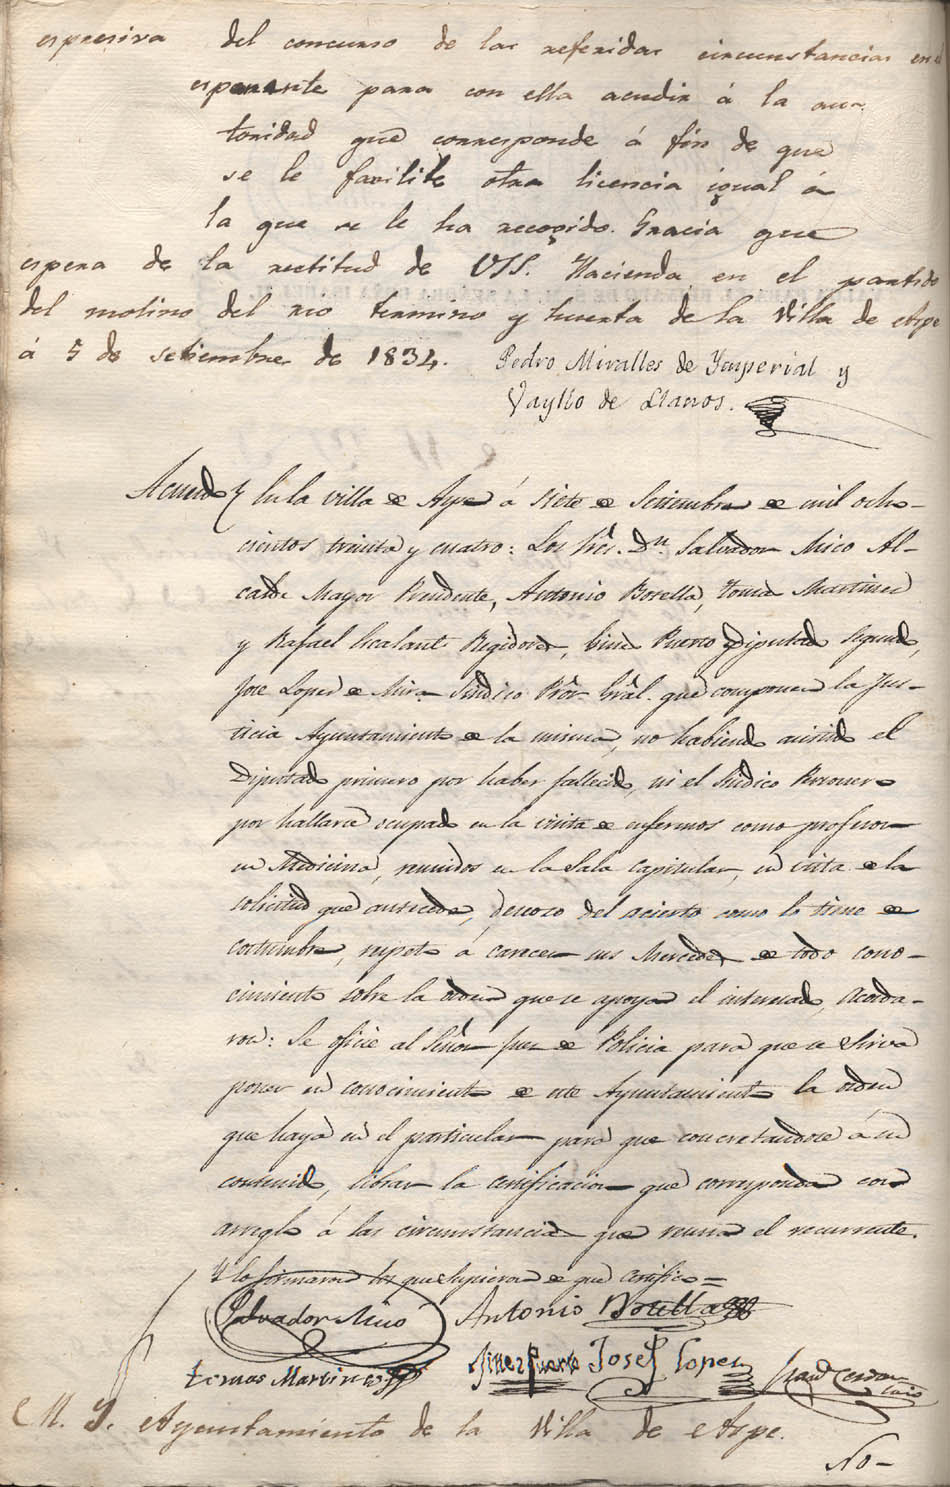 espresiva del concurso de las referidas circunstancias en el
esponente para con ella acudir á la au-
toridad que corresponde á fin de que
se le facilite otra licencia igual á
la que se le ha recogido. Gracia que
espera de la rectitud de VSS. Hacienda en el partido
del molino del rio termino y huerta de la Villa de Aspe
á 5 de setiembre de 1834. Pedro Miralles de Ymperial y
Vayllo de Llanos.
Acuerdo En la villa de Aspe á siete de Setiembre de mil ocho-
cientos treinta y cuatro: Los Sres. Dn. Salvador Mico Al-
calde Mayor Presidente, Antonio Botella, Tomas Martinez
y Rafael Escalante Regidores, Gines Puerto Diputado segundo,
Jose Lopez de Mira Sindico Pror. Gral. que componen la Jus-
ticia Ayuntamiento de la misma, no habiendo asistido el
Diputado primero por haber fallecido, ni el Sindico Personero
por hallarse ocupado en la visita de enfermos como profesor
en Medicina, reunidos en la Sala Capitular, en vista de la
solicitud que antecede, deseoso del acierto como lo tiene de
costumbre, respeto á carecer sus Mercedes de todo cono-
cimiento sobre la orden que se apoya el interesado, acorda-
ron: Se oficie al Señor Juez de Policia para que se sirva
poner en conocimiento de este Ayuntamiento la orden
que haya en el particular para que concretandose á su
contenido, librar la certificacion que corresponda con
arreglo á las circunstancias que reuna el recurrente.
Y lo firmaron los que supieron de que certifico=
Salvador Mico Antonio Botella
tomas Martines Gines Puerto Josef Lopez
M. Y. Ayuntamiento de la Villa de Aspe.
No-